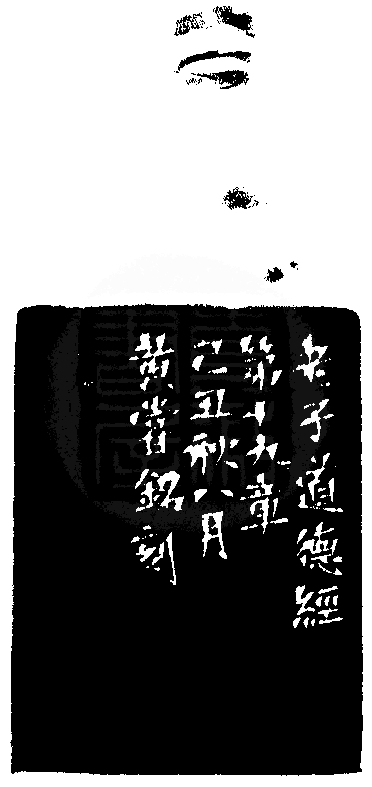 老子道德經
第十九章
己丑秋八月
黃嘗銘刻